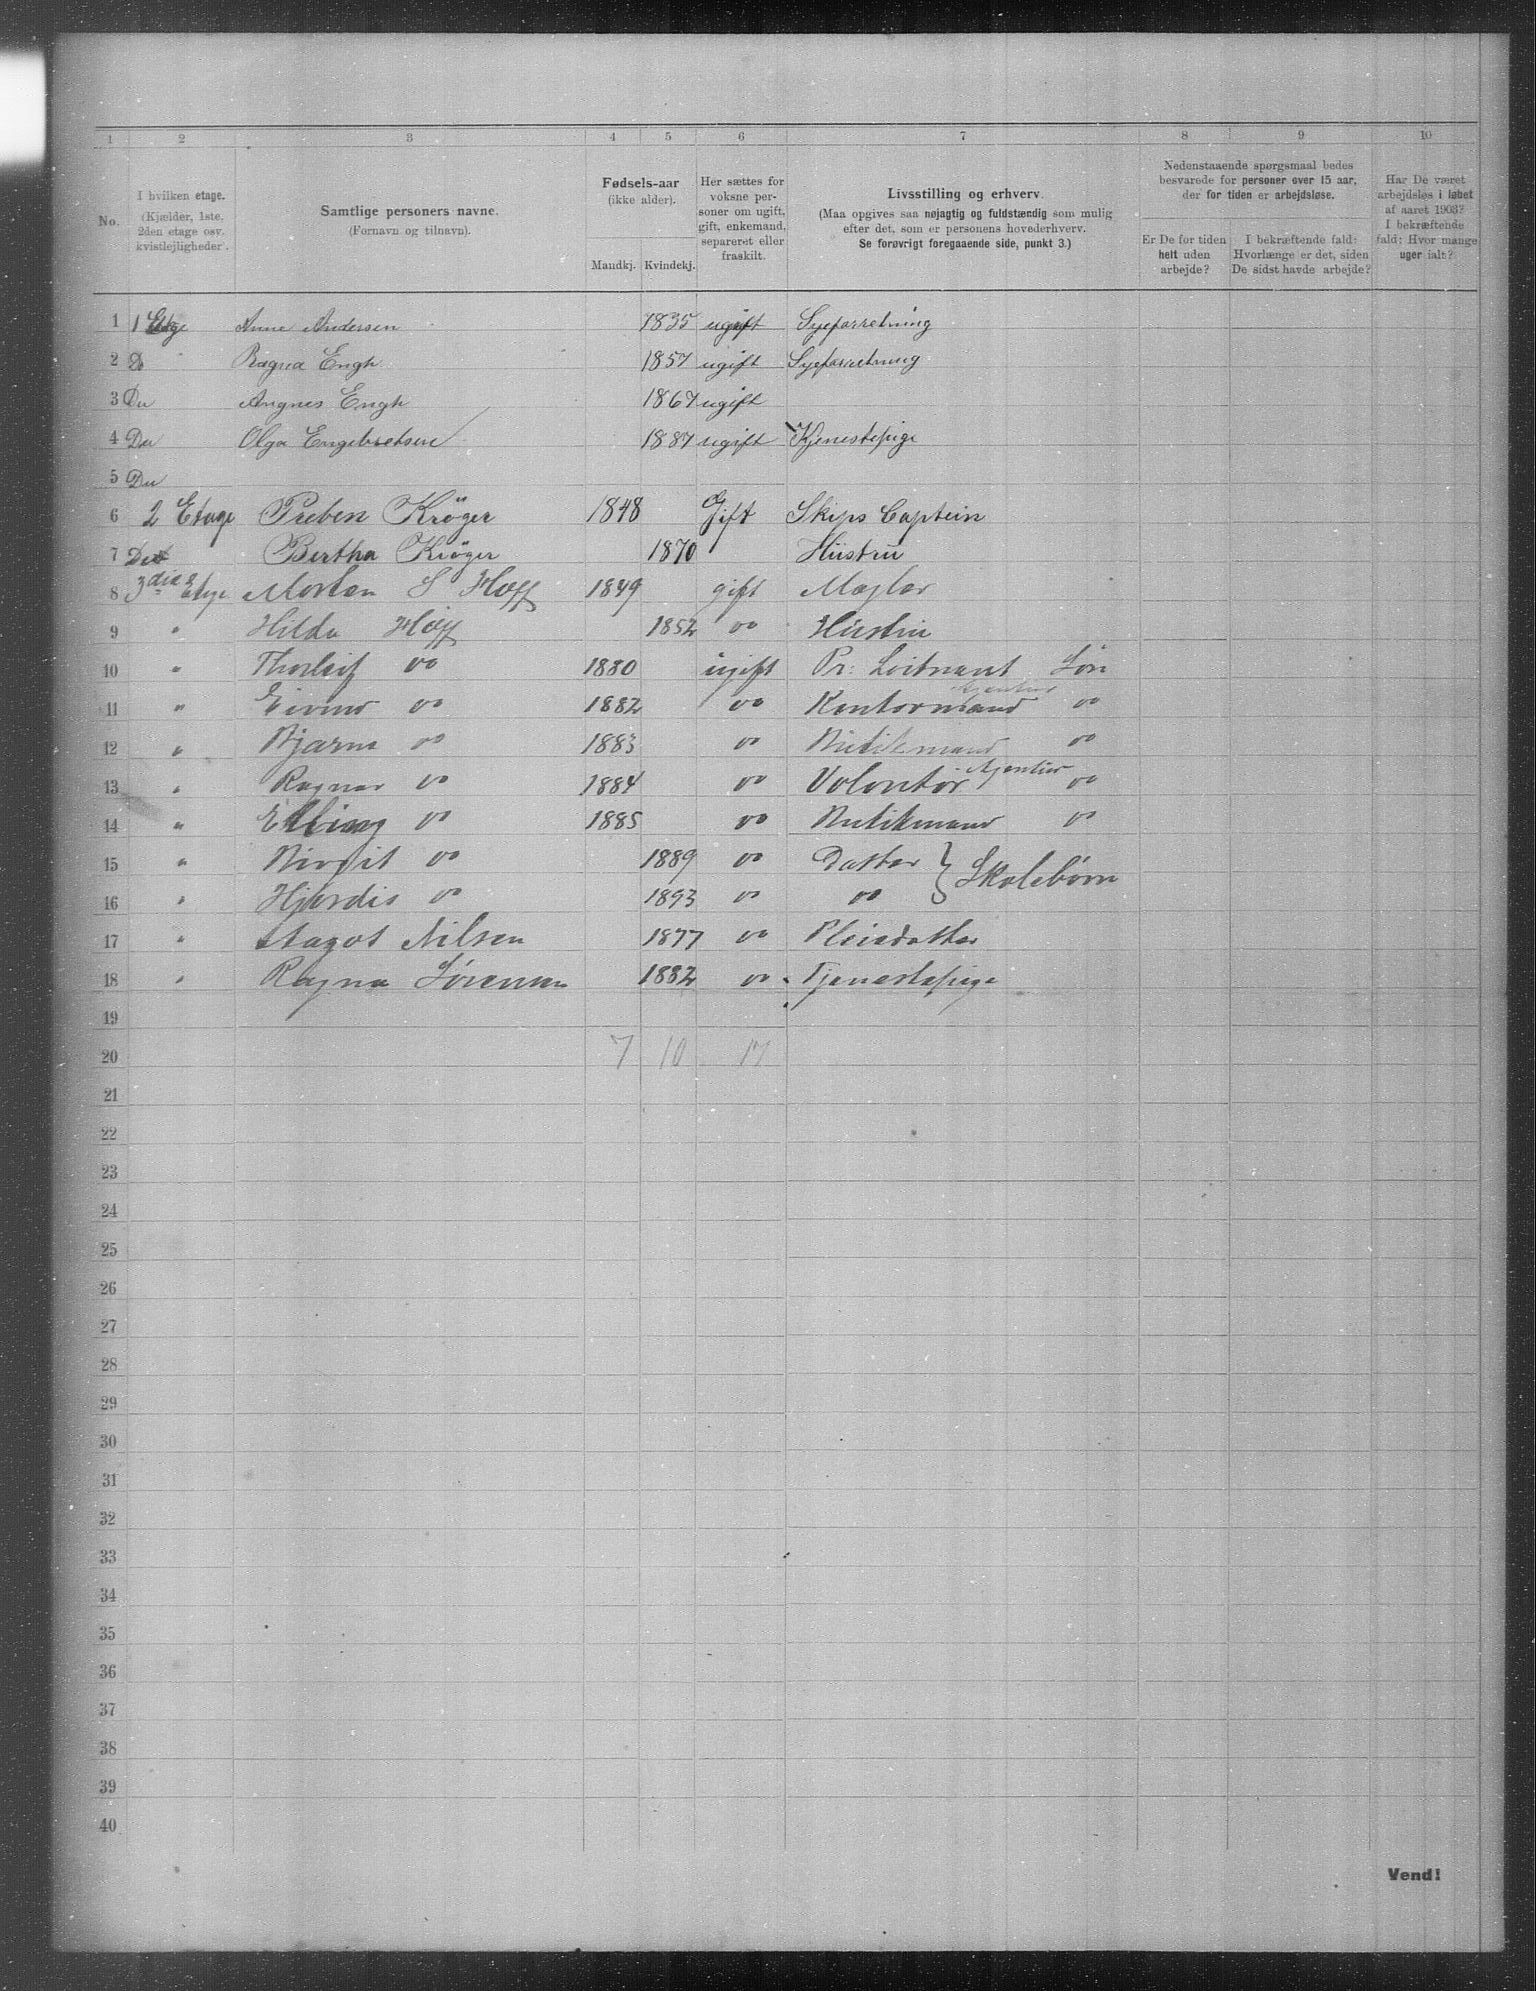 1 2 3 4 5 6 7 8 9 10
No.
I hvilken etage.
(Kjælder, 1ste,
2den etage osv.
kvistlejligheder).
Samtlige personers navne.
(Fornavn og tilnavn).
Fødsels-aar
(ikke alder).
Mandkj. Kvindekj.
Her sættes for
voksne per-
soner om ugift,
gift, enkemand,
separeret eller
fraskilt.
Livsstilling og erhverv.
(Maa opgives saa nøjagtig og fuldstændig som mulig
efter det, som er personens hovederhverv.
Se forøvrigt foregaaende side, punkt 3.)
Nedenstaaende spørgsmaal bedes
besvarede for personer over 15 aar,
der for tiden er arbejdsløse.
Er De for tiden
helt uden
arbejde?
I bekræftende fald:
Hvorlænge er det, siden
De sidst havde arbejde?
Har De været
arbejdsløs i løbet
af aaret 1903?
I bekræftende
fald: Hvor mange
uger ialt?
1 1 Etage Anna Andersen 1835 ugift Syeforretning
2 Do Ragna Engh 1857 ugift Syeforretning
3 Do Angnes Engh 1867 ugift
4 Do Olga Engebretsen 1887 ugift Tjenestepige
5 Do
6 2 Etage Preben Krøger 1848 Gift Skips Captein
7 Do Bertha Krøger 1870 Hustru
8 3die Etage Morten S Hoff 1849 gift Mægler
9 " Hilda Hoff 1852 do Hustru
10 " Thorleif do 1880 ugift Pr: Loitnant Søn
11 " Eivind do 1882 do Kontormand Agentur do
12 " Bjarne do 1883 do Butikmand do
13 " Ragnar do 1884 do Volontør Agentur do
14 " Elling do 1885 do Butikmand do
15 " Birgit do 1889 do Datter } Skolebørn
16 " Hjørdis do 1893 do do
17 " Aagot Nilsen 1877 do Pleiedatter
18 " Ragna Sørensen 1882 do Tjenestepige
19
20 7 10 17
21
22
23
24
25
26
27
28
29
30
31
32
33
34
35
36
37
38
39
40
Vend!